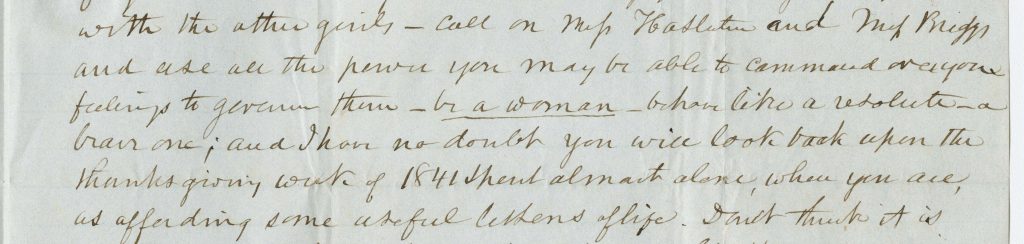 with the other girls – call on Miss Haslatin and Miss Briggs
and use all the power you may be able to command over your
feelings to govern them – be a woman – behave like a resolute – a
brave one; and I have no doubt you will look back upon the
thanksgiving week of 1841 spent almost alone, when you are,
as affording some useful lessens of life. Don't think it is